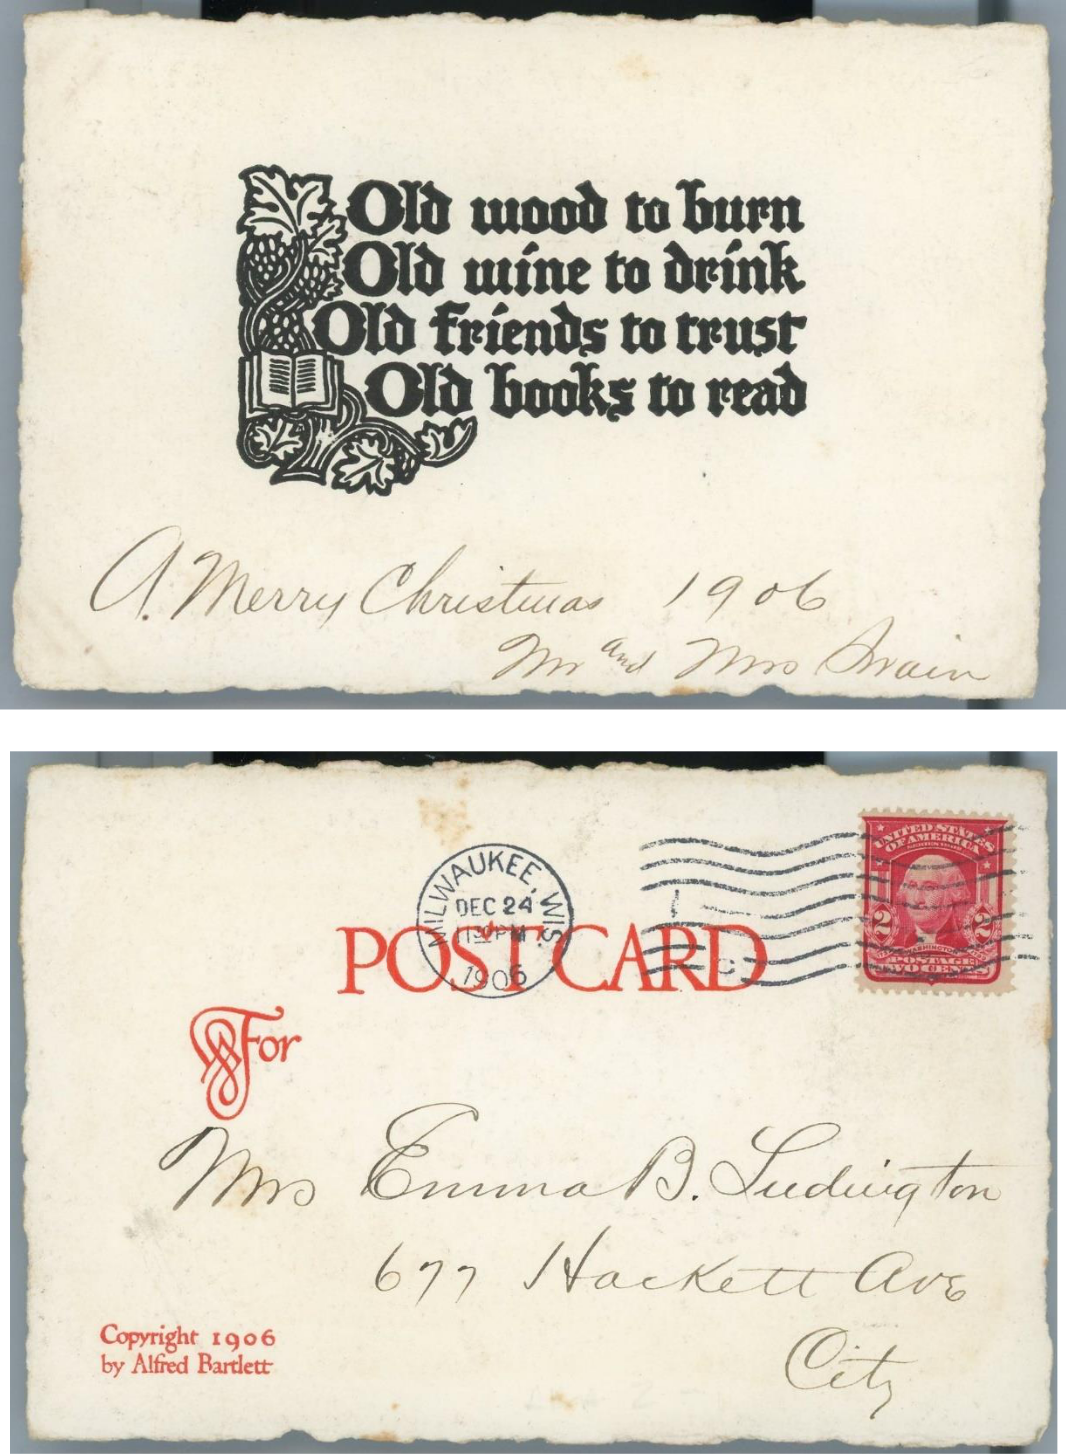 Old wood to burn
Old wine to drink
Old friends to trust
Old books to read
A. Merry Christmas 1906
Mr and Mrs Swain
MILWAUKEE, WIS.
DEC 24
PM
1906
UNITED STATES
OF AMERICA
SERIES 1902
2 2
WASHINGTON
POSTAGE
TWO CENTS
POST CARD
For
Mrs Emma B. Ludington
677 Hackett Ave
City
Copyright 1906
by Alfred Bartlett